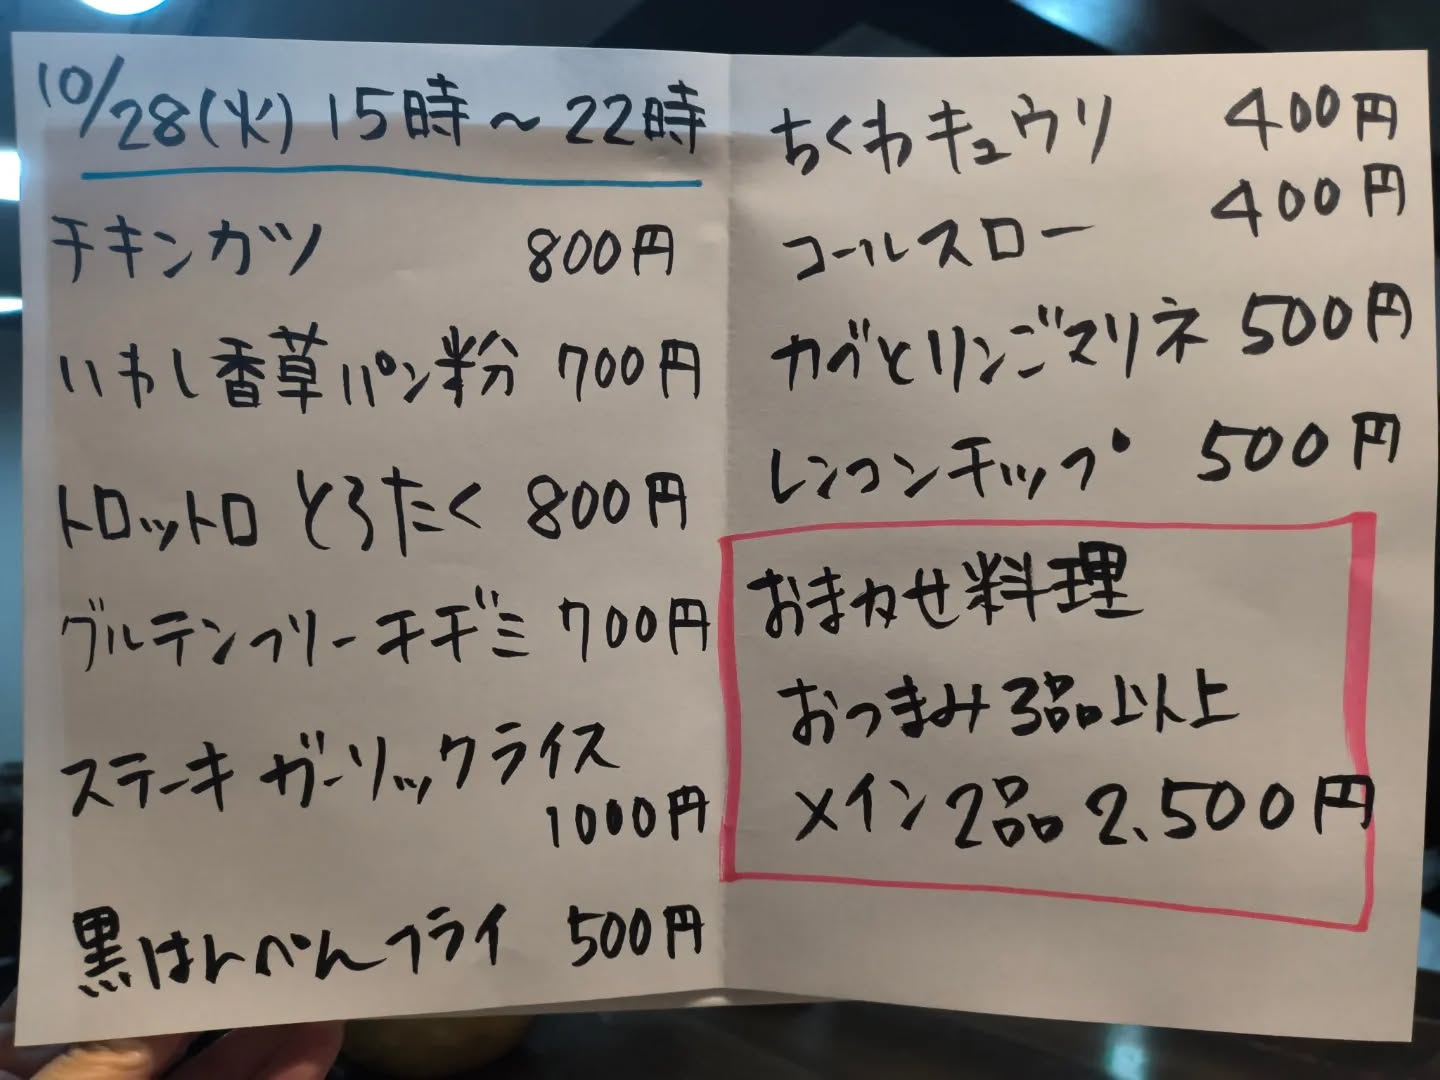 10/28(火) 15時～22時
チキンカツ 800円
いわし香草パン粉 700円
トロットロ とろたく 800円
グルテンフリーチヂミ 700円
ステーキ ガーリックライス
1000円
黒はんぺんフライ 500円
ちくわキュウリ 400円
コールスロー 400円
カブとリンゴマリネ 500円
レンコンチップ 500円
おまかせ料理
おつまみ3品以上
メイン2品 2,500円